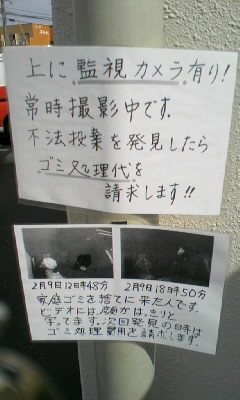 上に監視カメラ有り!
常時撮影中です.
不法投棄を発見したら
ゴミ処理代を
請求します!!
2月9日12時48分
2月9日18時50分
家庭ゴミを捨てに来た人です。
ビデオには、顔がはっきりと
写ってます。次回発見の時は
ゴミ処理費用を請求します。